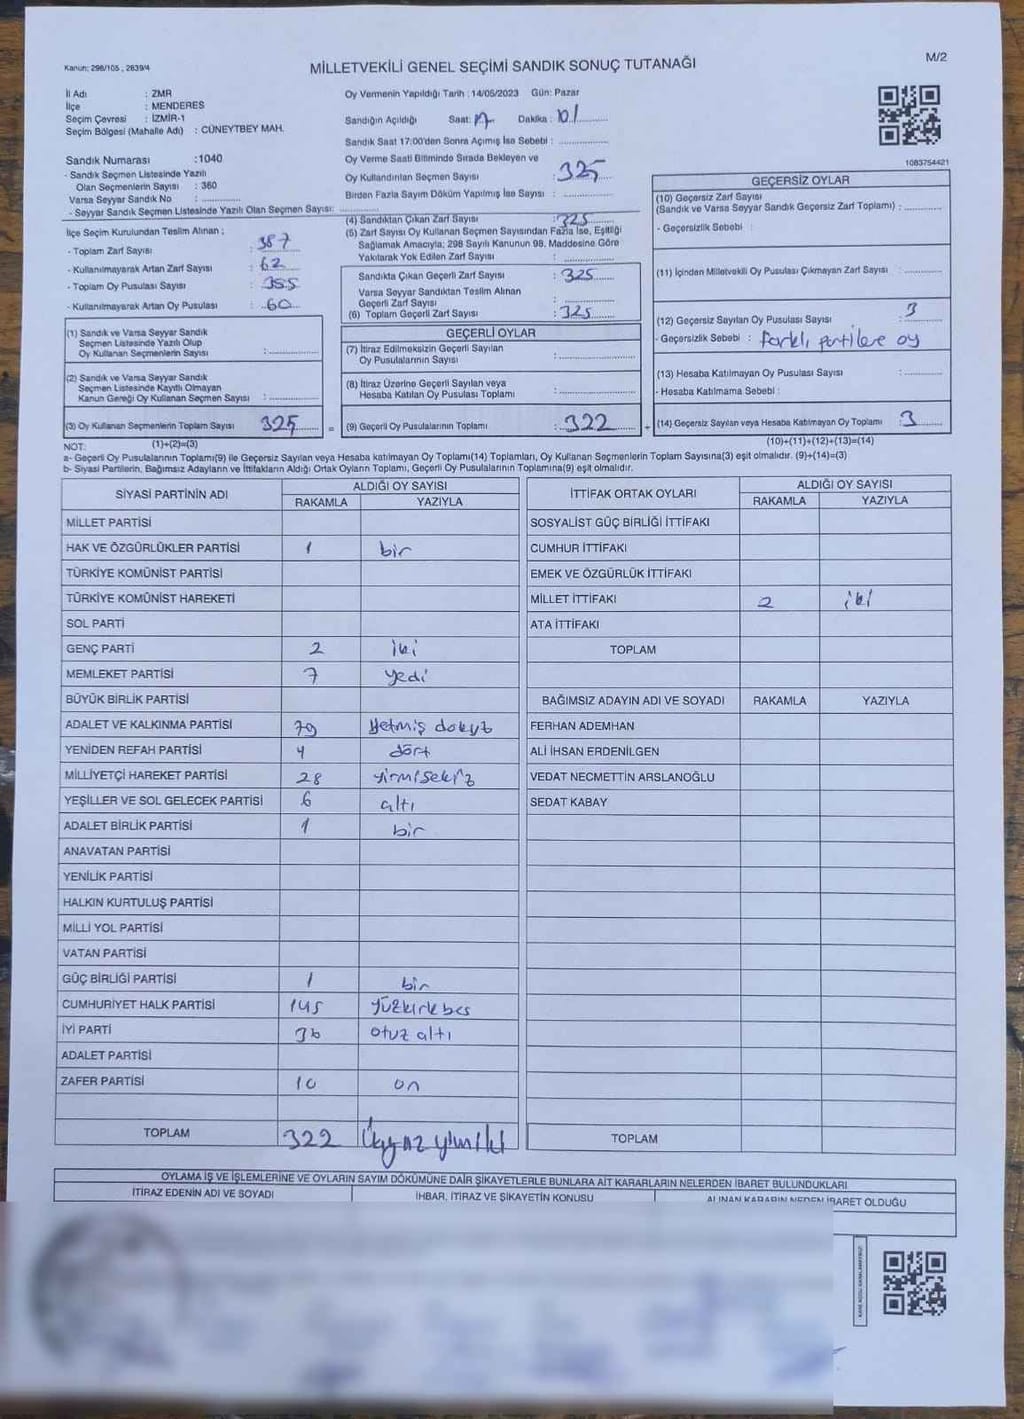 Kanun: 298/105 , 2839/4
MİLLETVEKİLİ GENEL SEÇİMİ SANDIK SONUÇ TUTANAĞI
M/2
İl Adı : ZMR
İlçe : MENDERES
Seçim Çevresi : İZMİR-1
Seçim Bölgesi (Mahalle Adı) : CÜNEYTBEY MAH.
Sandık Numarası :1040
- Sandık Seçmen Listesinde Yazılı
Olan Seçmenlerin Sayısı : 360
Varsa Seyyar Sandık No :
- Seyyar Sandık Seçmen Listesinde Yazılı Olan Seçmen Sayısı:
Oy Vermenin Yapıldığı Tarih : 14/05/2023 Gün: Pazar
Sandığın Açıldığı Saat: 17 Dakika :
Sandık Saat 17:00'den Sonra Açımış İse Sebebi :
Oy Verme Saati Bitiminde Sırada Bekleyen ve
Oy Kullandırılan Seçmen Sayısı : 325
Birden Fazla Sayım Döküm Yapılmış İse Sayısı :
1083754421
İlçe Seçim Kurulundan Teslim Alınan ;
- Toplam Zarf Sayısı : 387
- Kullanılmayarak Artan Zarf Sayısı : 62
- Toplam Oy Pusulası Sayısı : 385
- Kullanılmayarak Artan Oy Pusulası : 60
(1) Sandık ve Varsa Seyyar Sandık
Seçmen Listesinde Yazılı Olup
Oy Kullanan Seçmenlerin Sayısı :
(2) Sandık ve Varsa Seyyar Sandık
Seçmen Listesinde Kayıtlı Olmayan
Kanun Gereği Oy Kullanan Seçmen Sayısı :
(3) Oy Kullanan Seçmenlerin Toplam Sayısı 325 =
(4) Sandıktan Çıkan Zarf Sayısı : 325
(5) Zarf Sayısı Oy Kullanan Seçmen Sayısından Fazla İse, Eşitliği
Sağlamak Amacıyla; 298 Sayılı Kanunun 98. Maddesine Göre
Yakılarak Yok Edilen Zarf Sayısı :
Sandıkta Çıkan Geçerli Zarf Sayısı : 325
Varsa Seyyar Sandıktan Teslim Alınan
Geçerli Zarf Sayısı :
(6) Toplam Geçerli Zarf Sayısı : 325
GEÇERLİ OYLAR
(7) İtiraz Edilmeksizin Geçerli Sayılan
Oy Pusulalarının Sayısı :
(8) İtiraz Üzerine Geçerli Sayılan veya
Hesaba Katılan Oy Pusulası Toplamı :
(9) Geçerli Oy Pusulalarının Toplamı : 322 +
GEÇERSİZ OYLAR
(10) Geçersiz Zarf Sayısı
(Sandık ve Varsa Seyyar Sandık Geçersiz Zarf Toplamı) :
- Geçersizlik Sebebi :
(11) İçinden Milletvekili Oy Pusulası Çıkmayan Zarf Sayısı :
(12) Geçersiz Sayılan Oy Pusulası Sayısı : 3
- Geçersizlik Sebebi : farklı partilere oy
(13) Hesaba Katılmayan Oy Pusulası Sayısı :
- Hesaba Katılmama Sebebi :
(14) Geçersiz Sayılan veya Hesaba Katılmayan Oy Toplamı : 3
NOT: (1)+(2)=(3) (10)+(11)+(12)+(13)=(14)
a- Geçerli Oy Pusulalarının Toplamı(9) ile Geçersiz Sayılan veya Hesaba katılmayan Oy Toplamı(14) Toplamları, Oy Kullanan Seçmenlerin Toplam Sayısına(3) eşit olmalıdır. (9)+(14)=(3)
b- Siyasi Partilerin, Bağımsız Adayların ve İttifakların Aldığı Ortak Oyların Toplamı, Geçerli Oy Pusulalarının Toplamına(9) eşit olmalıdır.
SİYASİ PARTİNİN ADI ALDIĞI OY SAYISI
RAKAMLA YAZIYLA
MİLLET PARTİSİ
HAK VE ÖZGÜRLÜKLER PARTİSİ 1 bir
TÜRKİYE KOMÜNİST PARTİSİ
TÜRKİYE KOMÜNİST HAREKETİ
SOL PARTİ
GENÇ PARTİ 2 iki
MEMLEKET PARTİSİ 7 yedi
BÜYÜK BİRLİK PARTİSİ
ADALET VE KALKINMA PARTİSİ 79 yetmiş dokuz
YENİDEN REFAH PARTİSİ 4 dört
MİLLİYETÇİ HAREKET PARTİSİ 28 yirmisekiz
YEŞİLLER VE SOL GELECEK PARTİSİ 6 altı
ADALET BİRLİK PARTİSİ 1 bir
ANAVATAN PARTİSİ
YENİLİK PARTİSİ
HALKIN KURTULUŞ PARTİSİ
MİLLİ YOL PARTİSİ
VATAN PARTİSİ
GÜÇ BİRLİĞİ PARTİSİ 1 bir
CUMHURİYET HALK PARTİSİ 145 yüzkırkbeş
İYİ PARTİ 36 otuz altı
ADALET PARTİSİ
ZAFER PARTİSİ 10 on
TOPLAM 322 Üçyüz yirmi iki
İTTİFAK ORTAK OYLARI ALDIĞI OY SAYISI
RAKAMLA YAZIYLA
SOSYALİST GÜÇ BİRLİĞİ İTTİFAKI
CUMHUR İTTİFAKI
EMEK VE ÖZGÜRLÜK İTTİFAKI
MİLLET İTTİFAKI 2 iki
ATA İTTİFAKI
TOPLAM
BAĞIMSIZ ADAYIN ADI VE SOYADI RAKAMLA YAZIYLA
FERHAN ADEMHAN
ALİ İHSAN ERDENİLGEN
VEDAT NECMETTİN ARSLANOĞLU
SEDAT KABAY
TOPLAM
OYLAMA İŞ VE İŞLEMLERİNE VE OYLARIN SAYIM DÖKÜMÜNE DAİR ŞİKAYETLERLE BUNLARA AİT KARARLARIN NELERDEN İBARET BULUNDUKLARI
İTİRAZ EDENİN ADI VE SOYADI İHBAR, İTİRAZ VE ŞİKAYETİN KONUSU ALINAN KARARIN NEDEN İBARET OLDUĞU